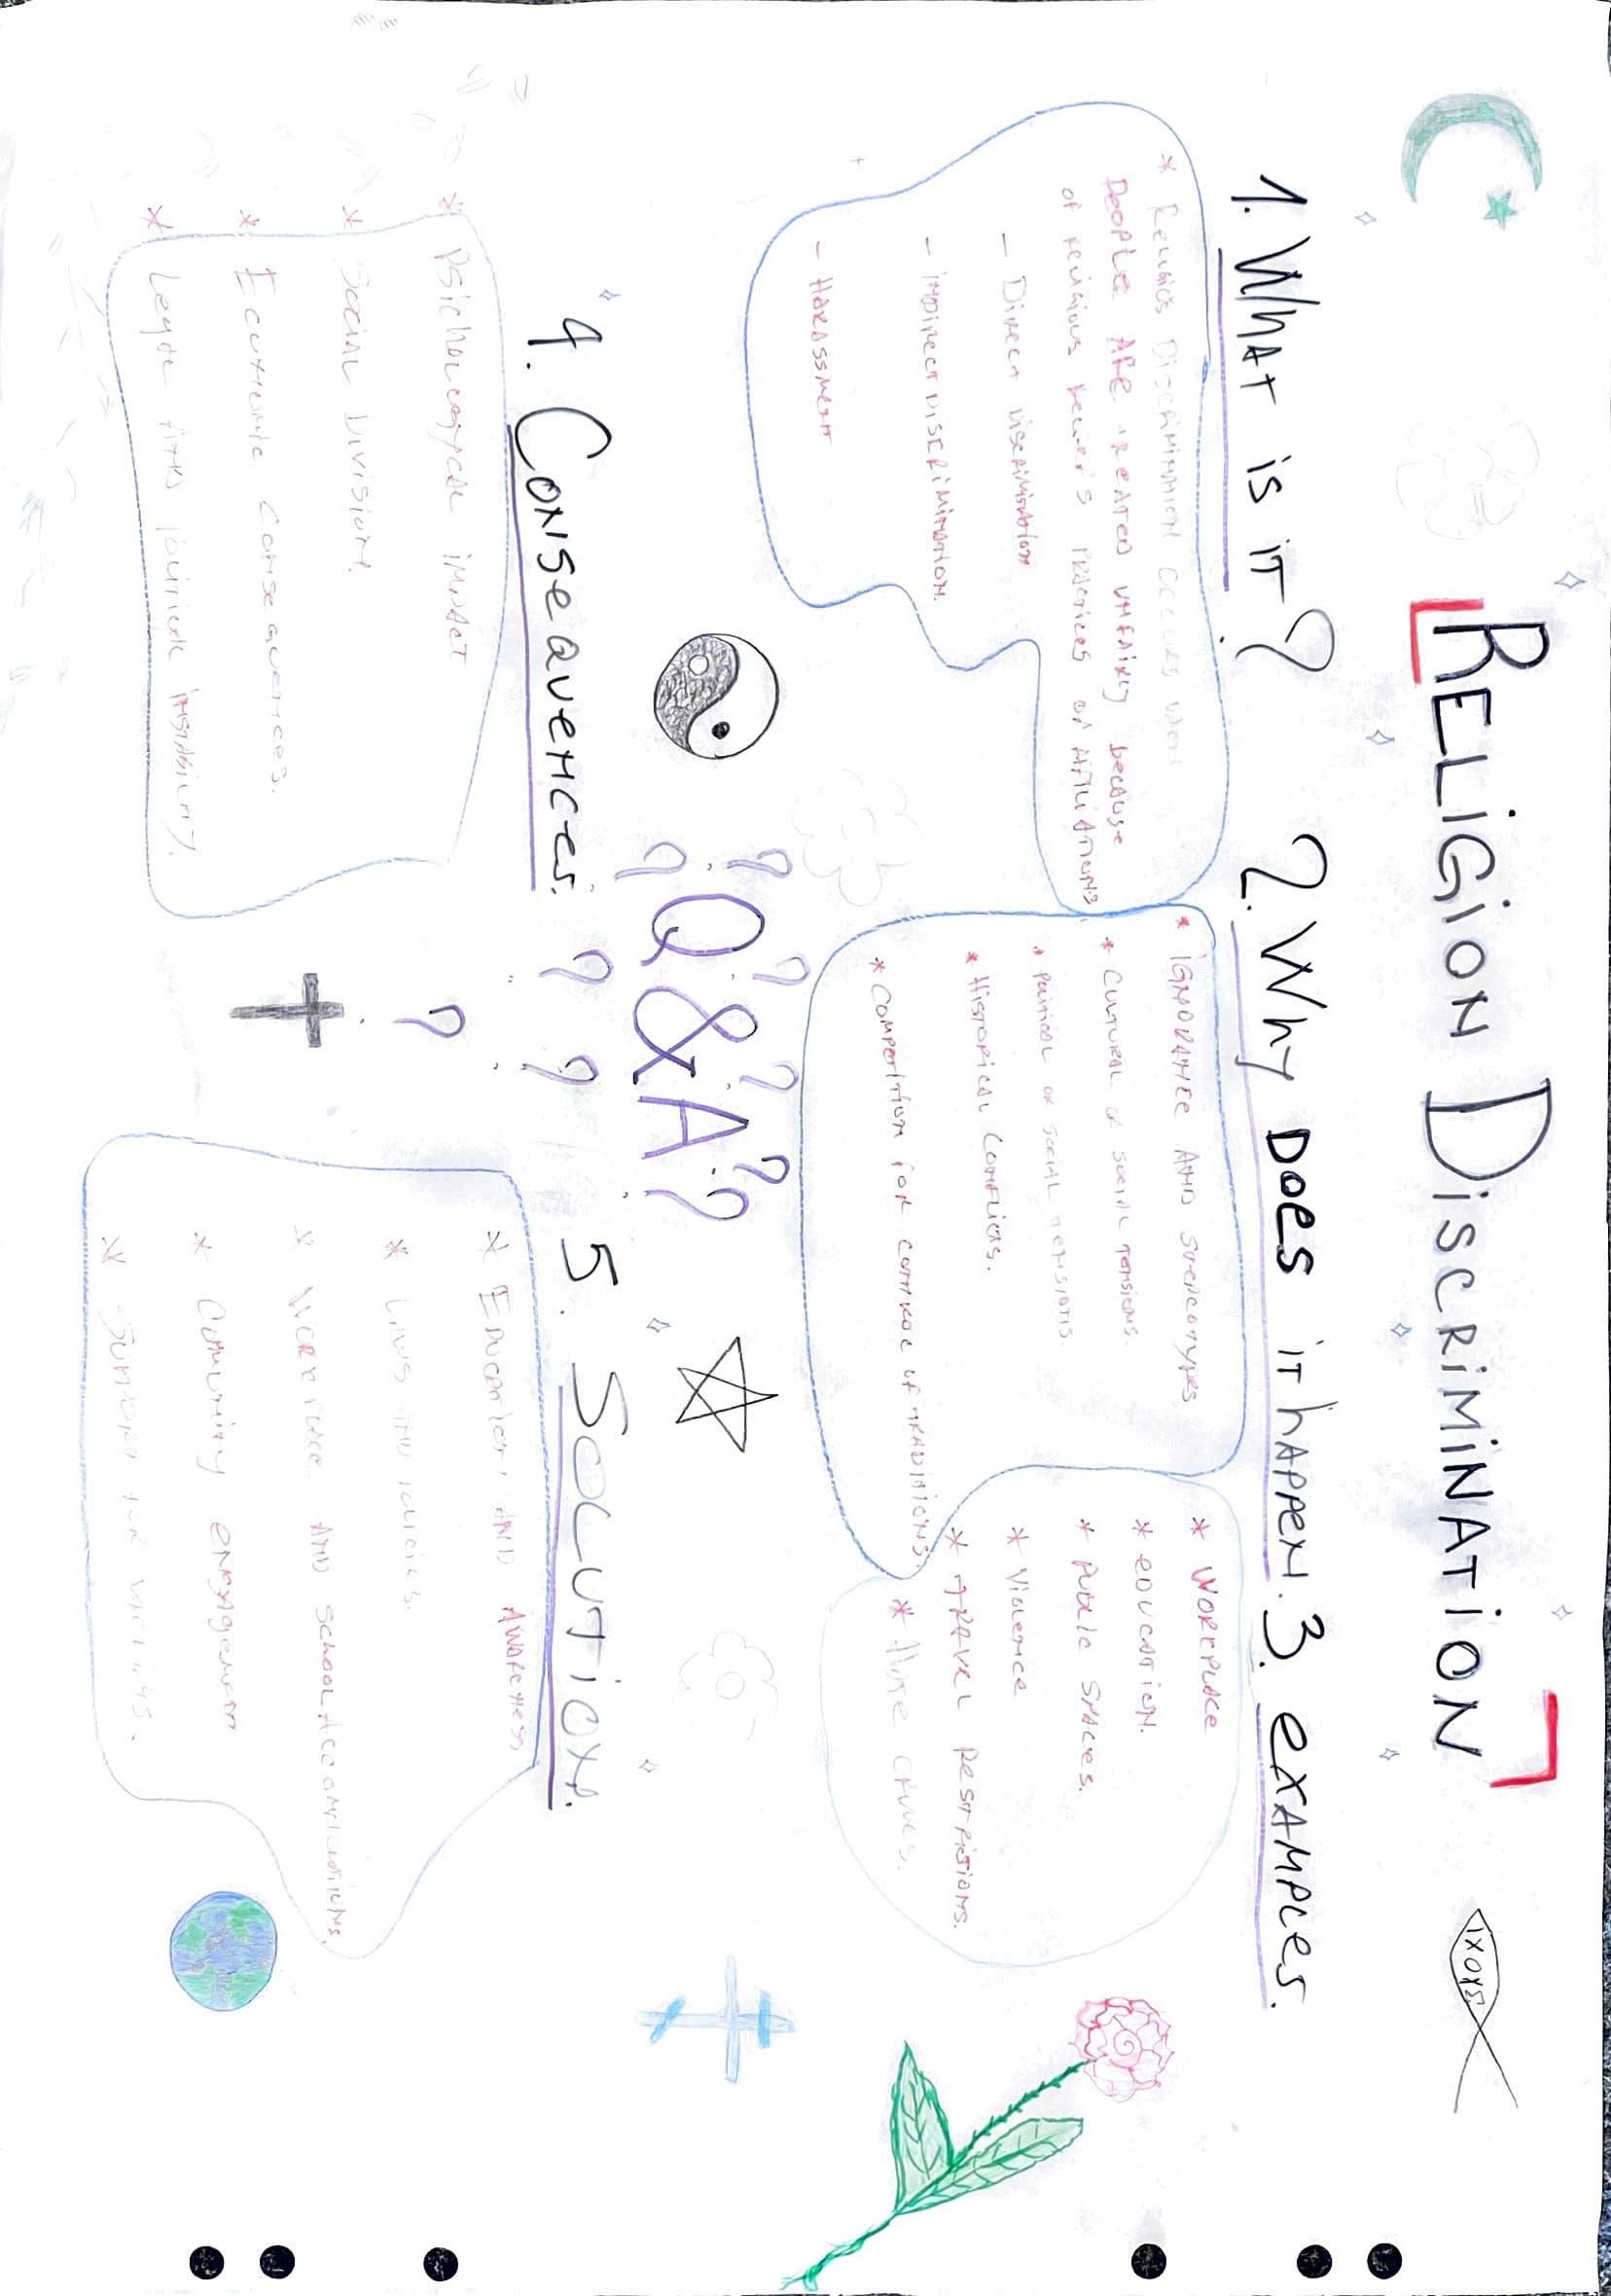 RELIGION DISCRIMINATION
ΙΧΘΥΣ
1. What is it?
* Religios Discriminaion occurs when
people are treated unfairly because
of religious beliefs practices or affiliations
- Direct discrimination
- indirect discrimination.
- Harassment
2. Why Does it happen.
* ignorance and stereotypes
* cultural or social tensions.
* political or social tensions.
* Historical conflicts.
* competition for control of traditions.
3. examples.
* workplace
* education.
* public spaces.
* violence
* travel restrictions.
* Hate crimes.
Q&A
4. Consequences.
* Psichological impact
* Social Division.
* Economic consequences.
* Legal and political instability.
5. Solution.
* Education and awareness
* Laws and policies.
* and school accomplications.
* Community engagement
* Support for victims.